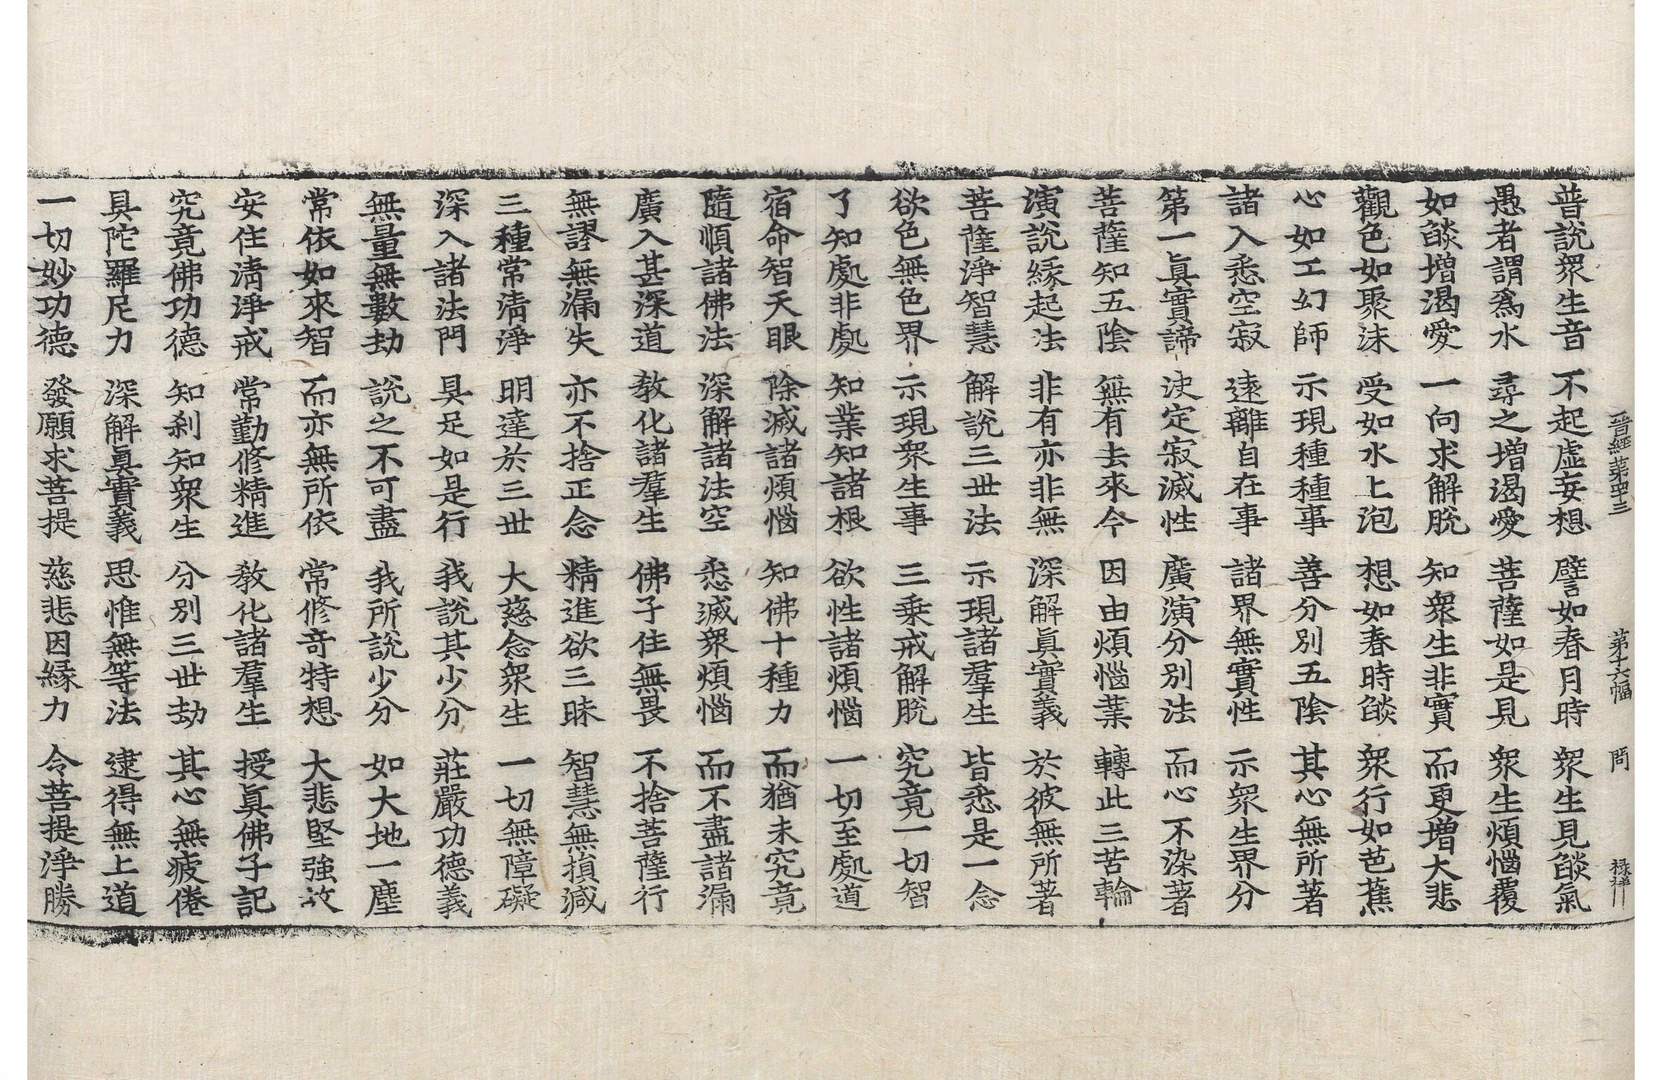 晋經華卌三 第十六幅 問
普說衆生音 不起虛妄想 譬如春月時 衆生見燄氣
愚者謂爲水 尋之增渴愛 菩薩如是見 衆生煩惱覆
如燄增渴愛 一向求解脫 知衆生非實 而更增大悲
觀色如聚沫 受如水上泡 想如春時燄 衆行如芭蕉
心如工幻師 示現種種事 善分別五陰 其心無所著
諸入悉空寂 遠離自在事 諸界無實性 示衆生界分
第一眞實諦 決定寂滅性 廣演分別法 而心不染著
菩薩知五陰 無有去來今 因由煩惱業 轉此三苦輪
演說緣起法 非有亦非無 深解眞實義 於彼無所著
菩薩淨智慧 解說三世法 示現諸羣生 皆悉是一念
欲色無色界 示現衆生事 三乘戒解脫 究竟一切智
了知處非處 知業知諸根 欲性諸煩惱 一切至處道
宿命智天眼 除滅諸煩惱 知佛十種力 而猶未究竟
隨順諸佛法 深解諸法空 悉滅衆煩惱 而不盡諸漏
廣入甚深道 敎化諸羣生 佛子住無畏 不捨菩薩行
無謬無漏失 亦不捨正念 精進欲三昧 智慧無損減
三種常淸淨 明達於三世 大慈念衆生 一切無障礙
深入諸法門 具足如是行 我說其少分 莊嚴功德義
無量無數劫 說之不可盡 我所說少分 如大地一塵
常依如來智 而亦無所依 常修奇特想 大悲堅强故
安住淸淨戒 常勤修精進 敎化諸羣生 授眞佛子記
究竟佛功德 知刹知衆生 分別三世劫 其心無疲倦
具陀羅尼力 深解眞實義 思惟無等法 逮得無上道
一切妙功德 發願求菩提 慈悲因緣力 令菩提淨勝